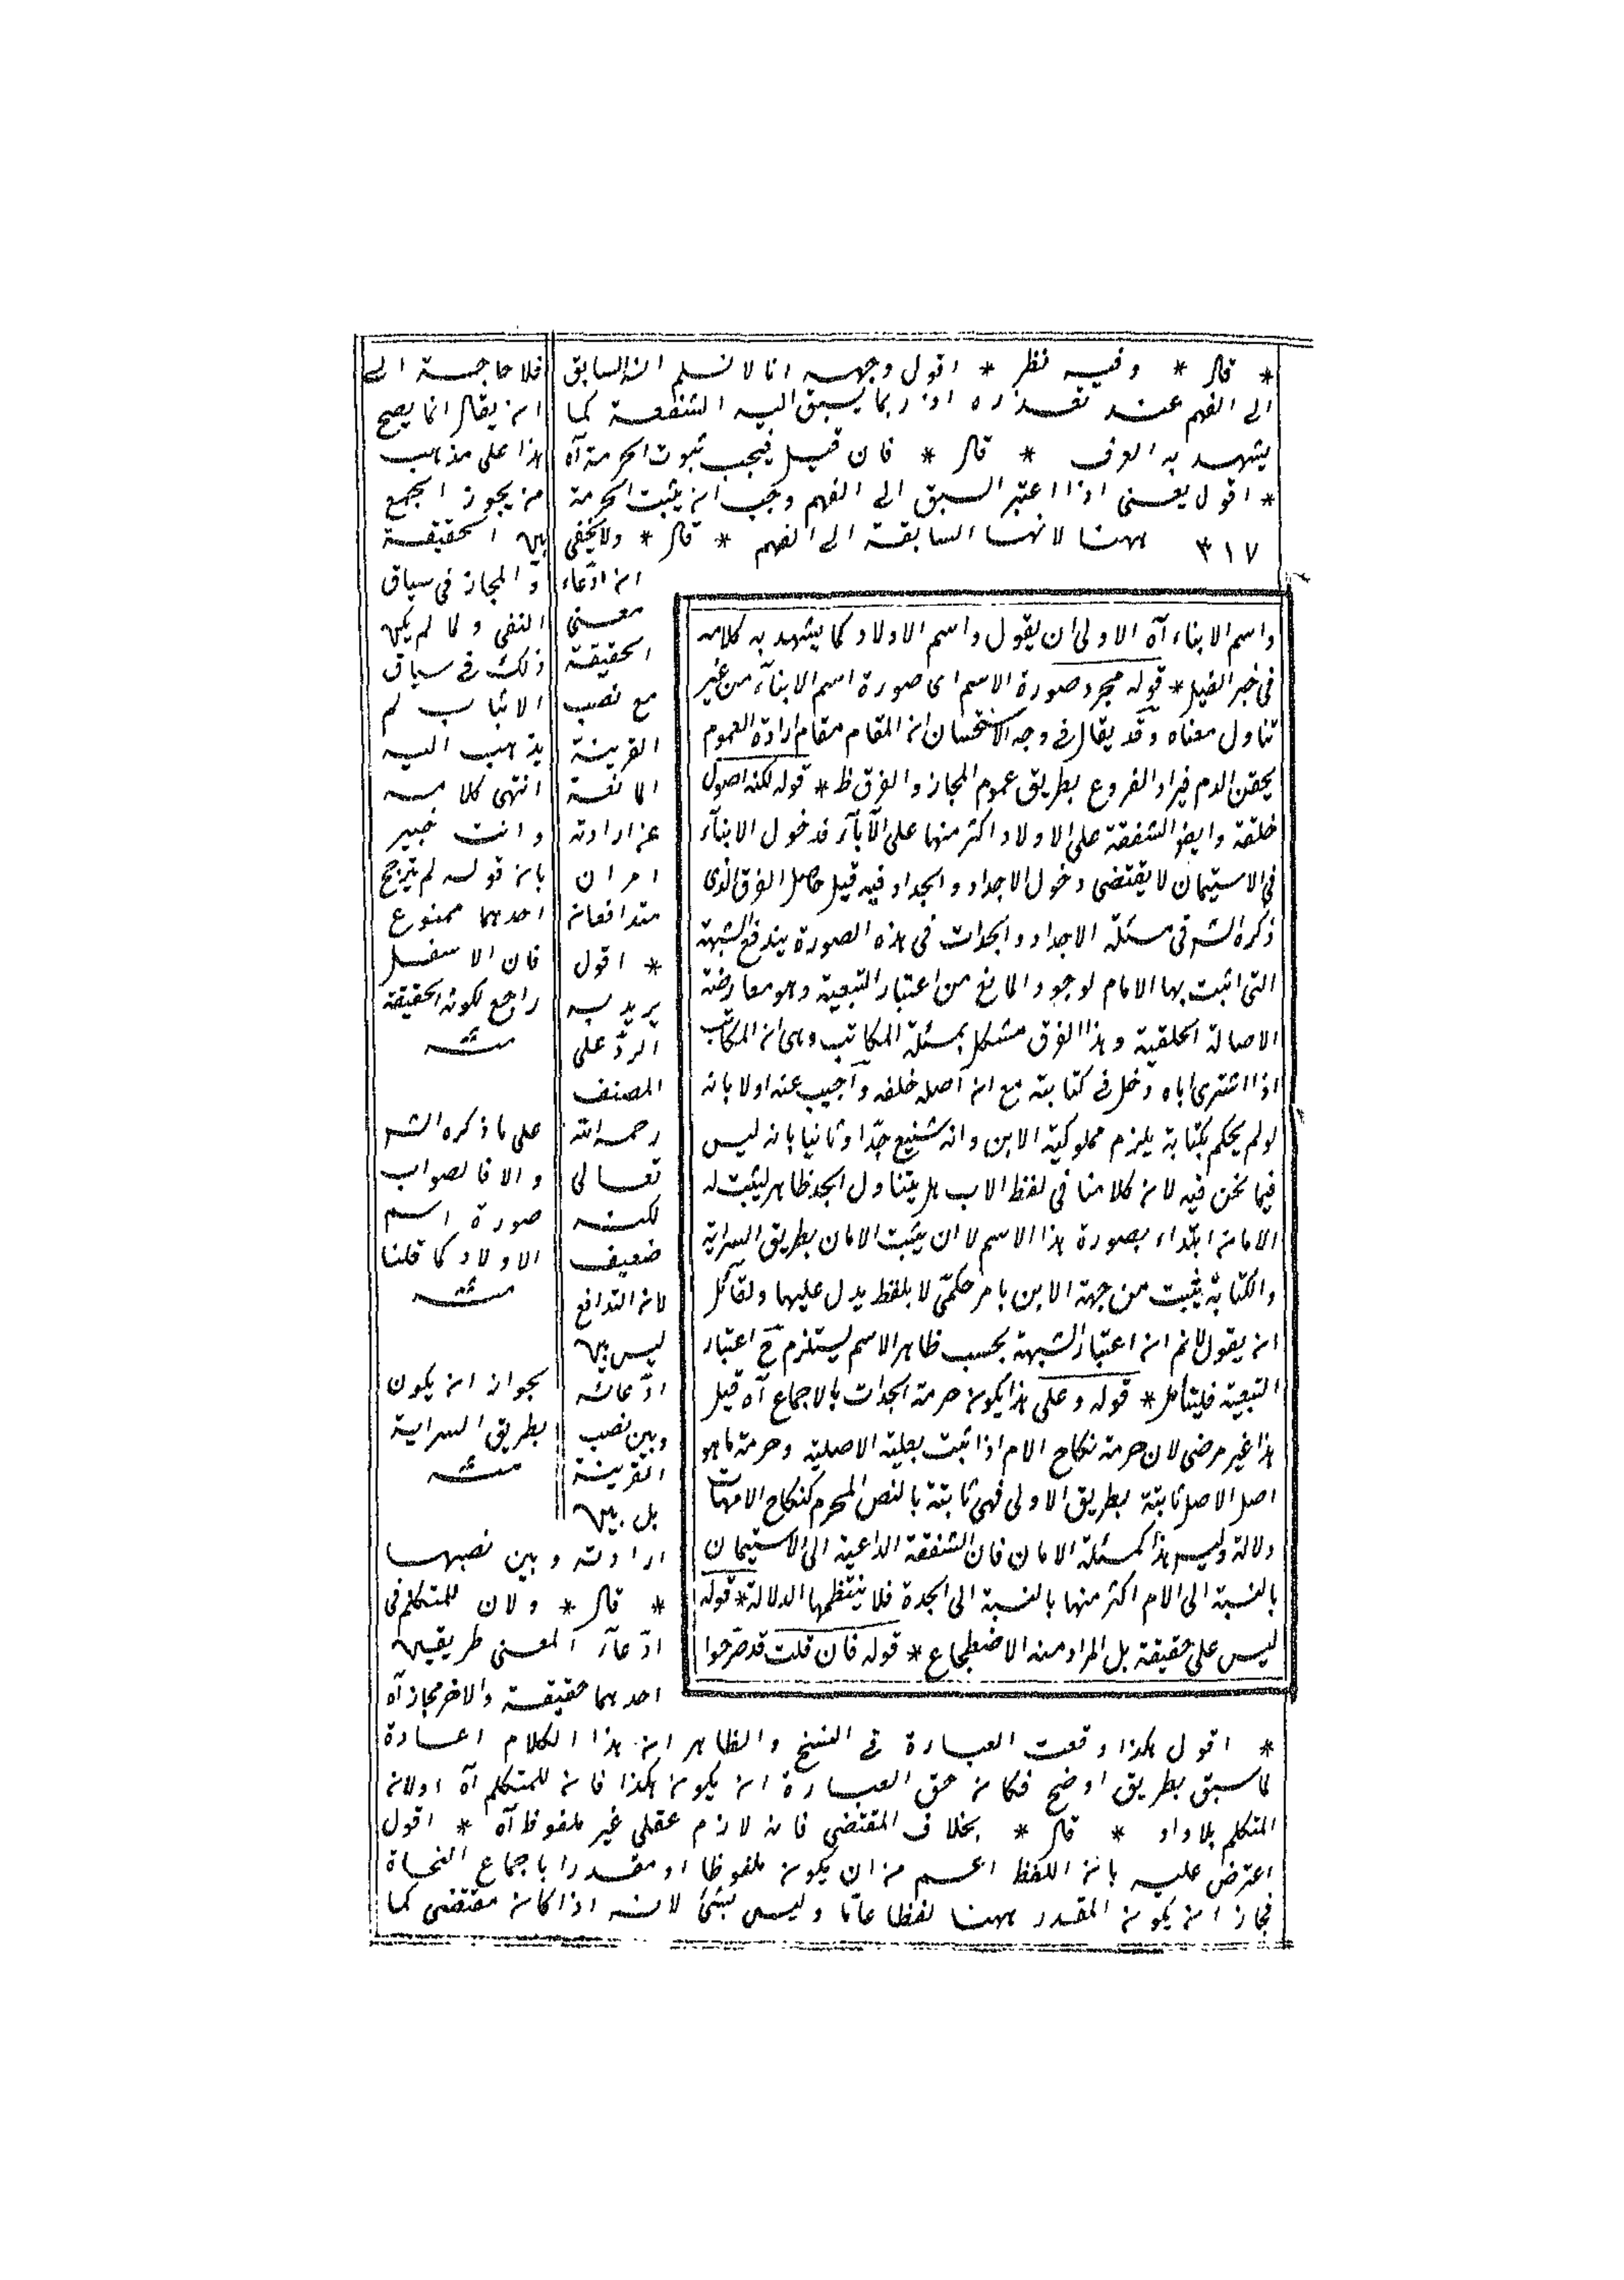 * قال * وفيه نظر * اقول وجهه انا لا نسلم ان السابق
الى الفهم عند تعذره اذ ربما يسبق اليه الشفعة كما
يشهد به العرف * قال * فان قيل فيجب ثبوت الحرمة آه
* اقول يعنى اذا اعتبر السبق الى الفهم وجب ان يثبت الحرمة
٣١٧ ههنا لانها السابقة الى الفهم * قال * ولا يخفى
ان ادّعاء
معنى
الحقيقة
مع نصب
القرينة
المانعة
عن ارادته
امران
متدافعان
* اقول
يريد به
الردّ على
المصنف
رحمه الله
تعالى
لكنه
ضعيف
لان التدافع
ليس بين
ادّعائه
وبين نصب
القرينة
بل بين
ارادته وبين نصبها
* قال * ولان للمتكلم فى
ادّعآء المعنى طريقين
احدهما حقيقة والاخر مجاز آه
* اقول هكذا وقعت العبارة فى النسخ والظاهر ان هذا الكلام اعادة
لما سبق بطريق اوضح فكان حق العبارة ان يكون هكذا فان للمتكلم آه اولان
المتكلم بلا واو * قال * بخلاف المقتضى فانه لازم عقلى غير ملفوظ آه * اقول
اعترض عليه بان اللفظ اعم من ان يكون ملفوظا او مقدرا باجماع النحاة
فجاز ان يكون المقدر ههنا لفظا عامّا وليس بشئ لانه اذا كان مقتضى كما
واسم الابناء آه الاولى ان يقول واسم الاولاد كما يشهد به كلامه
فى خبر الفيل * قوله مجرد صورة الاسم اى صورة اسم الابنآء من غير
تناول معناه وقد يقال فى وجه الاستحسان ان المقام مقام ارادة العموم
يحقن الدم فيراد الفروع بطريق عموم المجاز والفرق ظ * قوله لكنه اصول
خلقة وايضا الشفقة على الاولاد اكثر منها على الآبآء فدخول الابنآء
فى الاستيمان لا يقتضى دخول الاجداد والجداد فيه قيل حاصل الفرق الذى
ذكره الشر فى مسئلة الاجداد والجدات فى هذه الصورة يندفع الشبهة
التى اثبت بها الامام لوجود المانع من اعتبار التبعية وهو معارضة
الاصالة الخلقية وهذا الفرق مشكل بمسئلة المكاتب وهى ان المكاتب
اذا اشترى اباه دخل فى كتابته مع ان اصله خلفه واجيب عنه اولا بانه
لو لم يحكم بكتابة يلزم مملوكية الابن وانه شنيع جدّا وثانيا بانه ليس
فيما نحن فيه لان كلامنا فى لفظ الاب هل يتناول الجد ظاهر ليثبت له
الامان ابتداء بصورة هذا الاسم لا ان يثبت الامان بطريق السراية
والكتابة يثبت من جهة الابن بامر حكمىّ لا بلفظ يدل عليهما ولقائل
ان يقول لانم ان اعتبار الشبهة بحسب ظاهر الاسم يستلزم ح اعتبار
التبعية فليتأمل * قوله وعلى هذا يكون حرمة الجدات بالاجماع آه قيل
هذا غير مرضى لان حرمة نكاح الام اذا ثبت بعلية الاصلية وحرمة ما هو
اصل الاصل ثابتة بطريق الاولى فهى ثابتة بالنص المحرم كنكاح الامهات
دلالة وليس هذا كمسئلة الامان فان الشفقة الداعية الى الاستيمان
بالنسبة الى الام اكثر منها بالنسبة الى الجدة فلا ينتظمها الدلالة * قوله
ليس على حقيقة بل المراد منه الاضطجاع * قوله فان قلت قد صرحوا
فلا حاجة الى
ان يقال انما يصح
هذا على مذهب
من يجوز الجمع
بين الحقيقة
والمجاز فى سياق
النفى ولما لم يكن
ذلك فى سياق
الاثبات لم
يذهب اليه
انتهى كلامه
وانت خبير
بان قوله لم يترجح
احدهما ممنوع
فان الاسفل
راجح لكونه الحقيقة
منه
على ما ذكره الشر
والا فالصواب
صورة اسم
الاولاد كما قلنا
منه
بجواز ان يكون
بطريق السراية
منه